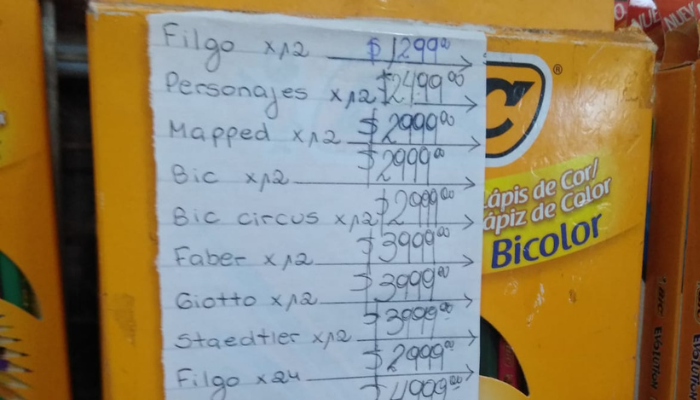 Filgo x12 $1299⁰⁰
Personajes x12 $2499⁰⁰
Mapped x12 $2999⁰⁰
Bic x12 $2999⁰⁰
Bic circus x12 $2999⁰⁰
Faber x12 $3999⁰⁰
Giotto x12 $3999⁰⁰
Staedtler x12 $3999⁰⁰
Filgo x24 $2999⁰⁰
$4999⁰⁰
®
Lápis de Cor/
Lápiz de Color
Bicolor
EVOLUTION